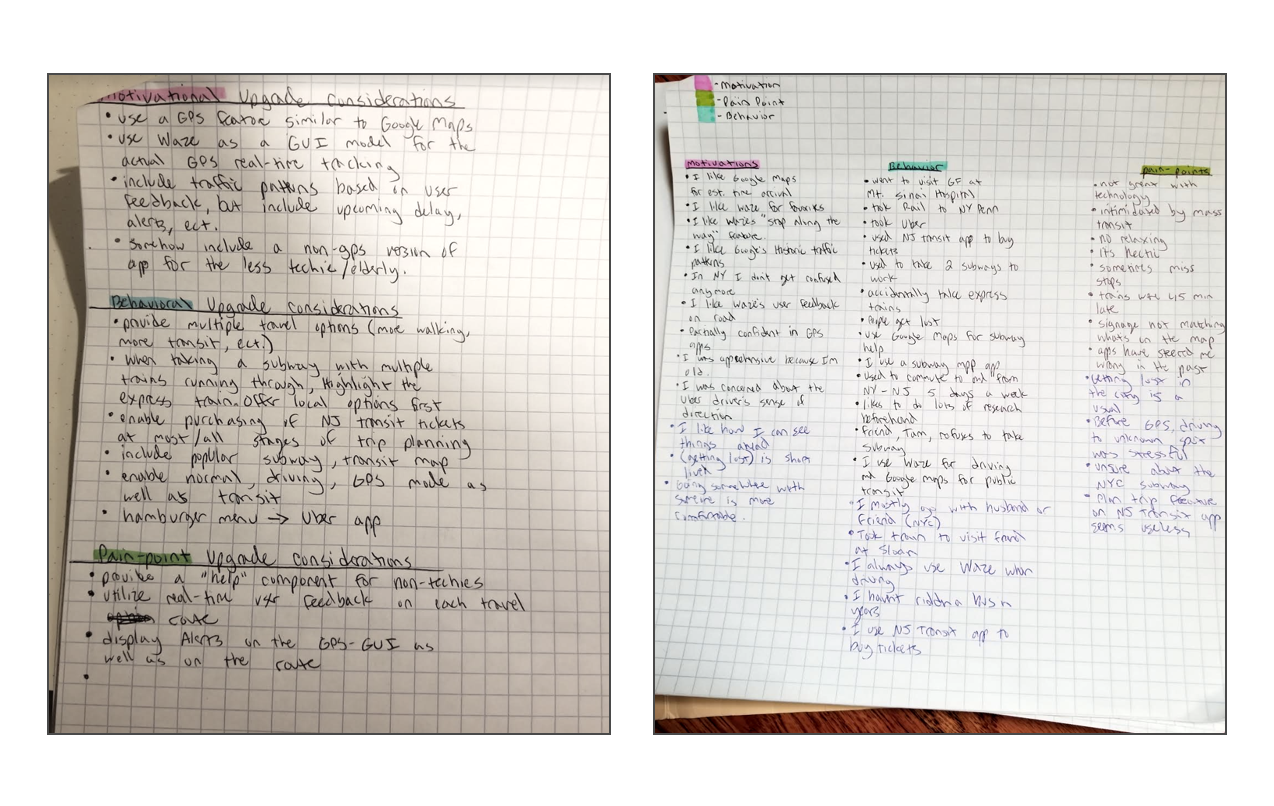 Motivational Upgrade Considerations
• use a GPS feature similar to Google Maps
• use Waze as a GUI model for the
actual GPS real-time tracking
• include traffic patterns based on user
feedback, but include upcoming delay,
alerts, ect.
• somehow include a non-gps version of
app for the less techie/elderly.
Behavioral Upgrade Considerations
• provide multiple travel options (more walking,
more transit, ect.)
• when taking a subway with multiple
trains running through, Highlight the
express train. Offer local options first
• enable purchasing of NJ transit tickets
at most/all stages of trip planning
• include popular subway, transit map
• enable normal, driving, GPS mode as
well as transit
• hamburger menu → Uber app
Pain-point Upgrade considerations
• provide a "help" component for non-techies
• utilize real-time user feedback on each travel
route
• display Alerts on the GPS-GUI as
well as on the route
- Motivation
- Pain Point
- Behavior
Motivations
• I like Google Maps
for est. time arrival
• I like Waze for favorites
• I like Waze's "stop along the
way" feature.
• I like Google's Historic traffic
patterns
• In NY I don't get confused
anymore
• I like Waze's user feedback
on road
• Partially confident in GPS
apps
• I was apprehensive because I'm
old.
• I was concerned about the
Uber driver's sense of
direction
• I like how I can see
things ahead
• (getting lost) is short
lived
• Going somewhere with
someone is more
comfortable.
Behavior
• went to visit GF at
Mt. Sinai Hospital
• took Rail to NY Penn
• took Uber
• used NJ transit app to buy
tickets
• used to take 2 subways to
work
• accidentally take express
trains
• People get lost
• use Google Maps for subway
help
• I use a subway map app
• used to commute to and from
NY-NJ 5 days a week
• likes to do lots of research
beforehand
• friend, Tam, refuses to take
subway
• I use Waze for driving
and Google maps for public
transit
• I mostly go with husband or
Friend (NYC)
• Took train to visit friend
at Sloan
• I always use Waze when
driving
• I haven't ridden a bus in
years
• I use NJ Transit app to
buy tickets
Pain-points
• not great with
technology
• intimidated by mass
transit
• no relaxing
• its hectic
• sometimes miss
stops
• trains were 45 min
late
• signage not matching
whats on the map
• apps have steered me
wrong in the past
• getting lost in
the city is a
usual
• Before GPS, driving
to unknown spot
was stressful
• unsure about the
NYC subway
• Plan trip feature
on NJ Transit app
seems useless